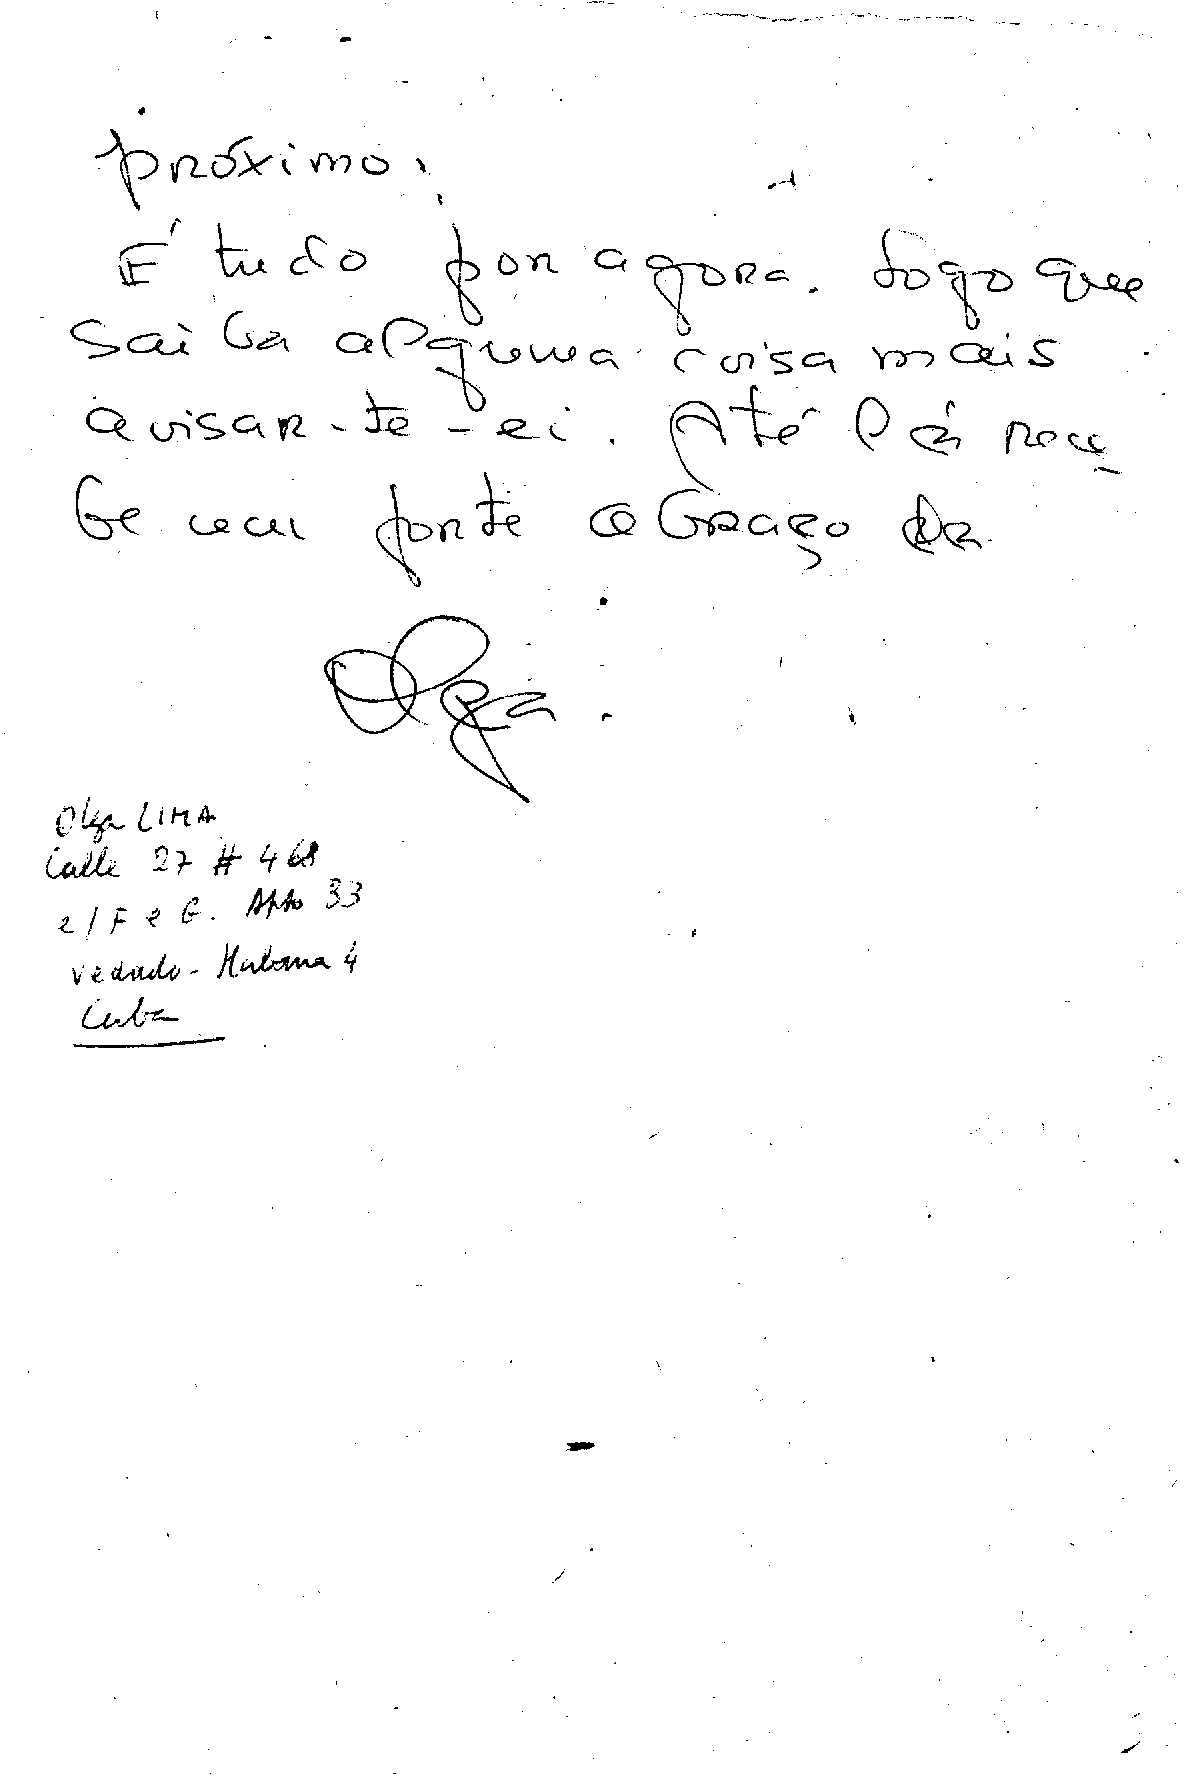 próximo.
É tudo por agora. Logo que
saiba alguma coisa mais
avisar-te-ei. Até lá rece_
be um forte abraço da
Olga.
Olga LIMA
Calle 27 # 468
e/ F e G. Apto 33
Vedado - Habana 4
Cuba